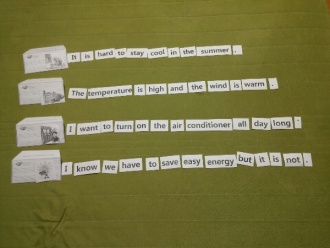 It is hard to stay cool in the summer .
The temperature is high and the wind is warm .
I want to turn on the air conditioner all day long .
I know we have to save easy energy but it is not .